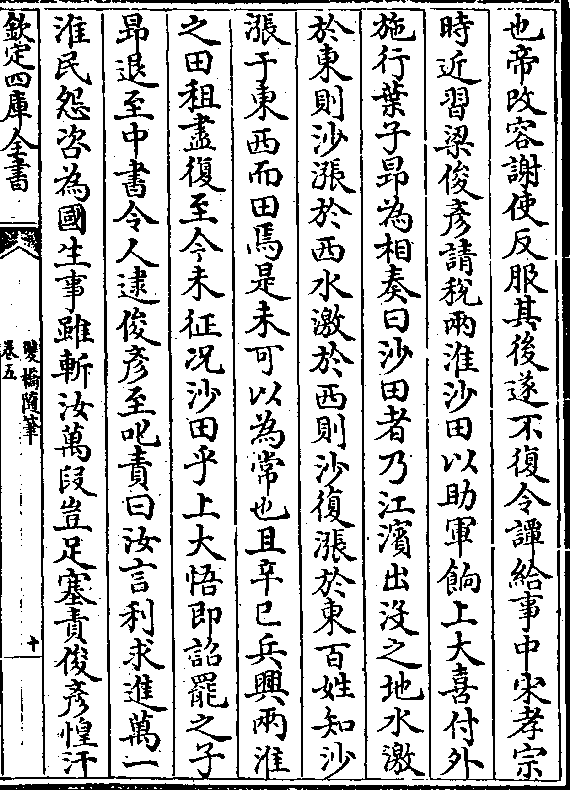 也帝改容謝使反服其後遂不復令譚給事中宋孝宗
時近習梁俊彥請稅兩淮沙田以助軍餉上大喜付外
施行葉子昂為相奏曰沙田者乃江濱出沒之地水激
於東則沙漲於西水激於西則沙復漲於東百姓知沙
漲于東西而田焉是未可以為常也且辛巳兵興兩淮
之田租盡復至今未征况沙田乎上大悟即詔罷之子
昂退至中書令人逮俊彥至叱責曰汝言利求進萬一
淮民怨咨為國生事雖斬汝萬段豈足塞責俊彥惶汗
欽定四庫全書
雙橋隨筆
卷五
十